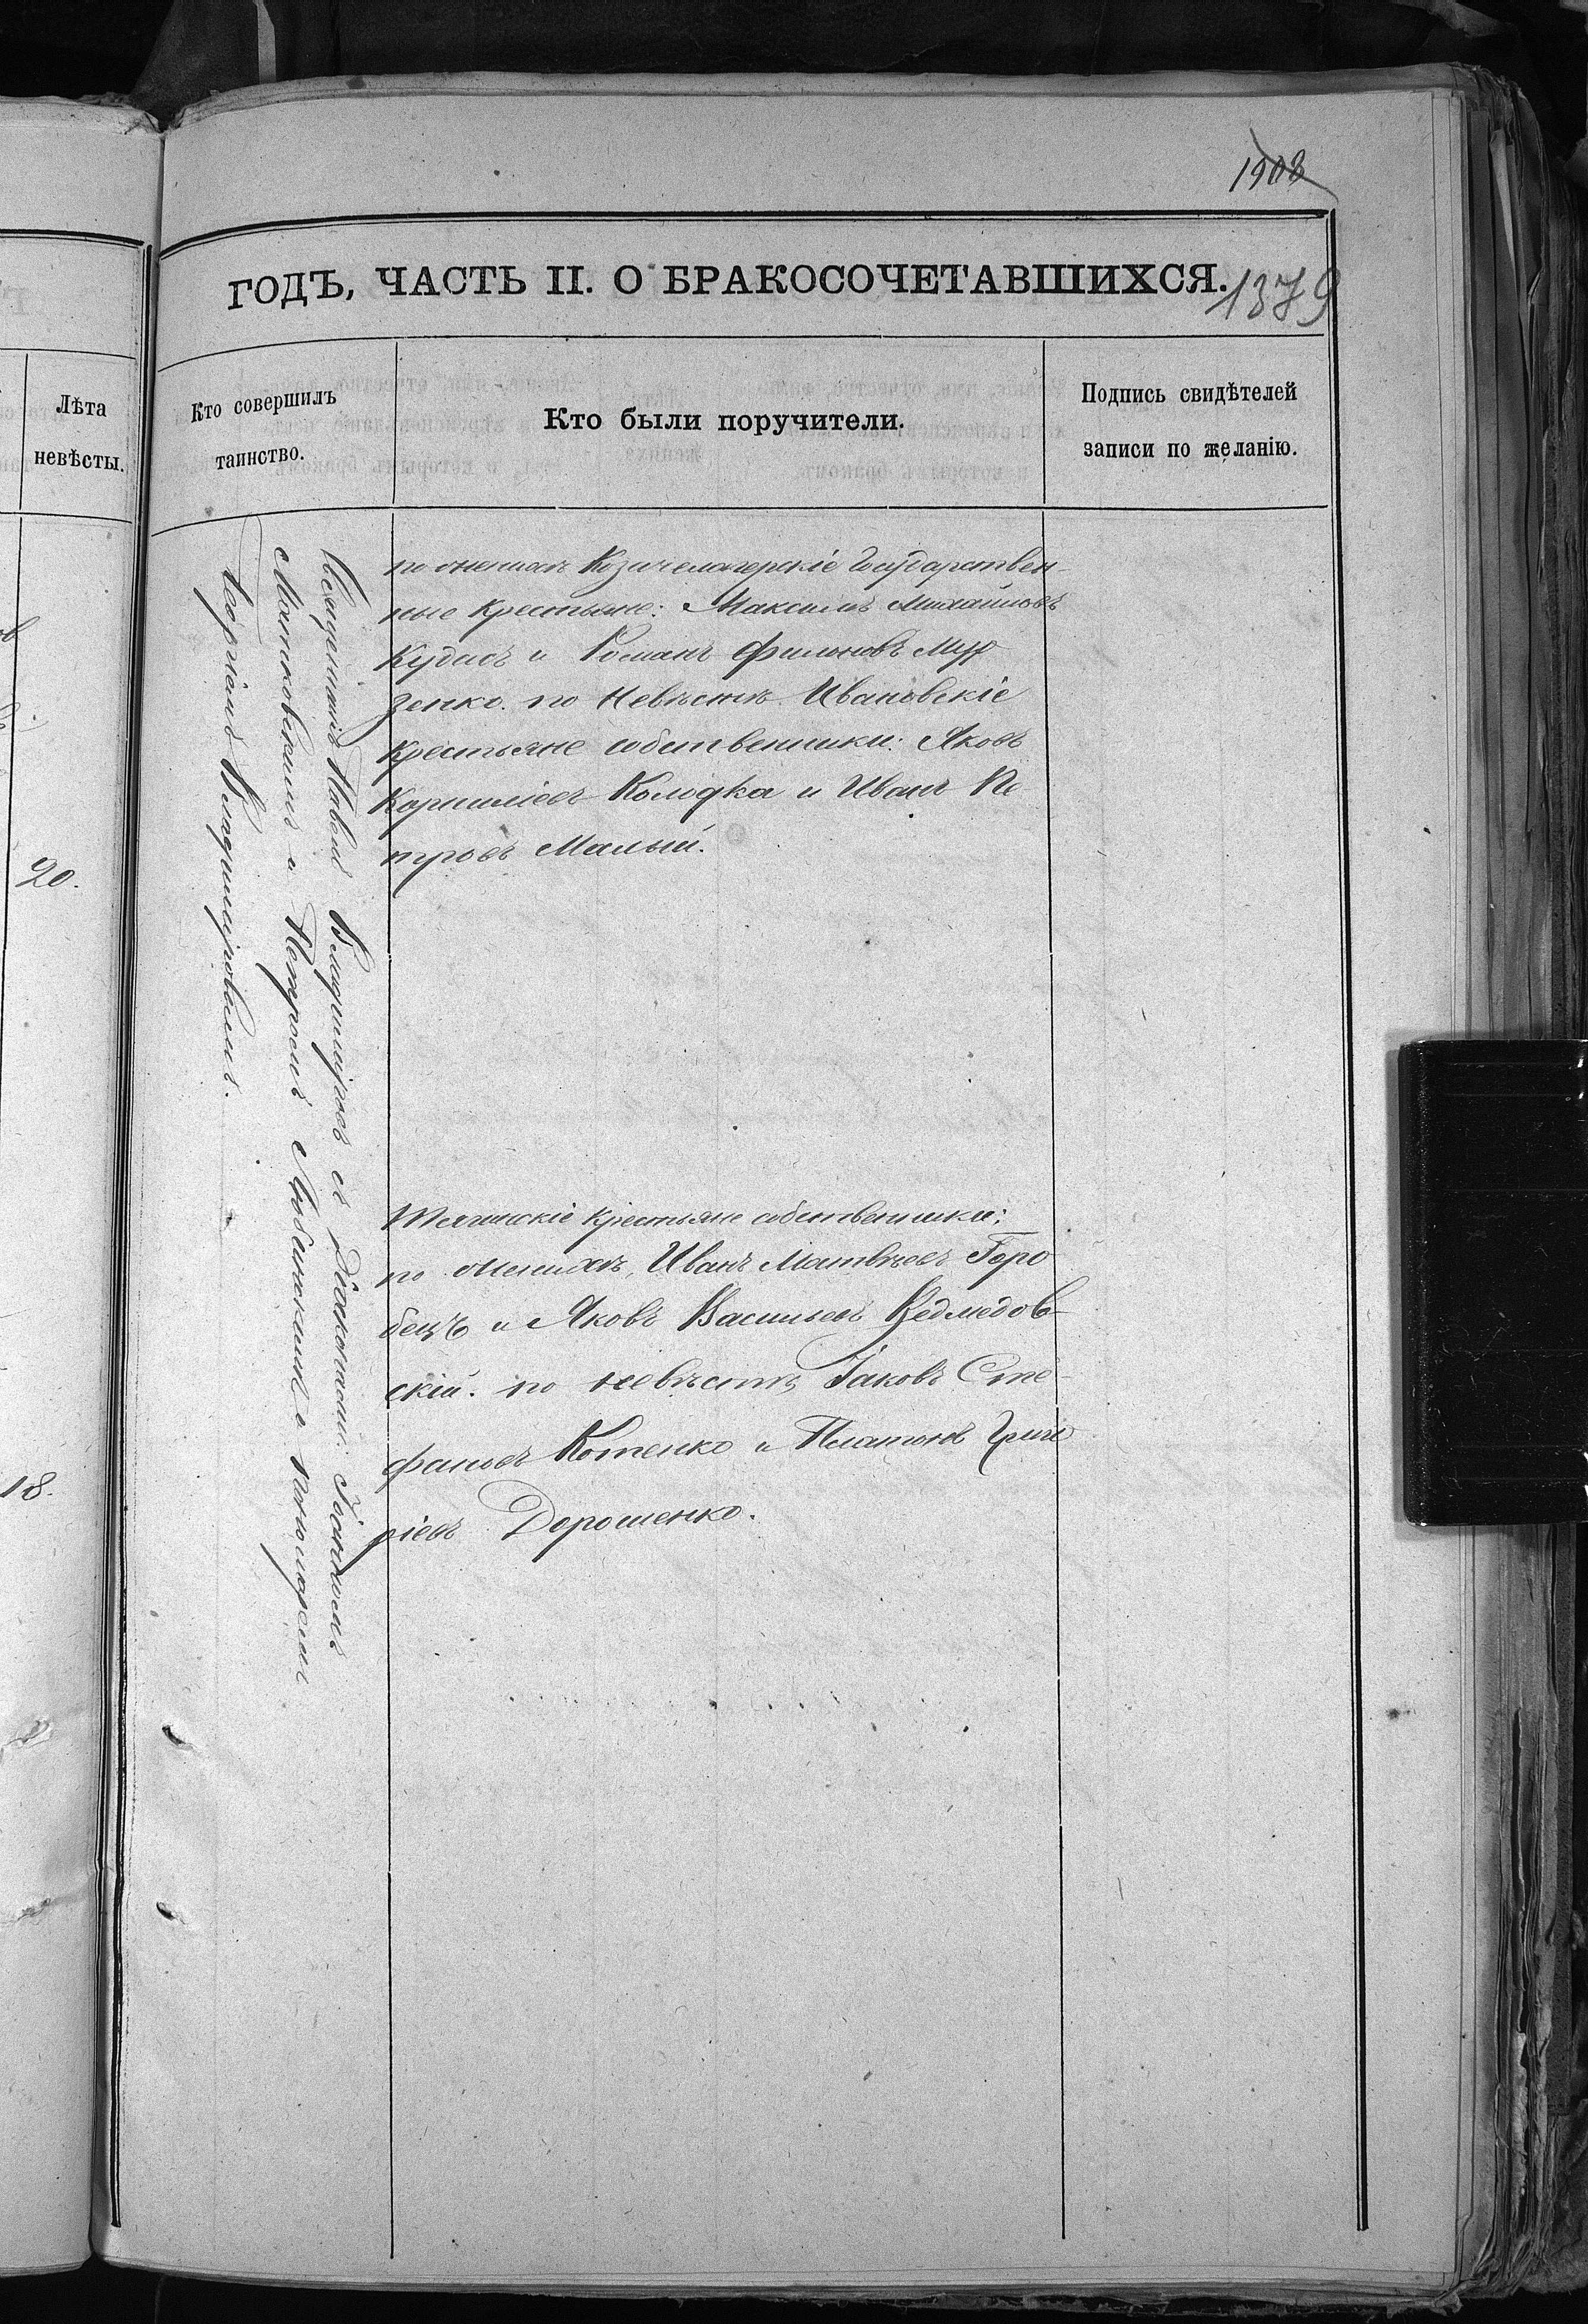 1908
ГОДЪ, ЧАСТЬ II. О БРАКОСОЧЕТАВШИХСЯ.
1379
Лѣта
невѣсты.
Кто совершилъ
таинство.
Кто были поручители.
Подпись свидѣтелей
записи по желанію.
20.
18.
Священникъ Павелъ Владиміровъ съ Діакономъ Іоанномъ
Матковскимъ и Петромъ Любинскимъ и пономаремъ
Георгіемъ Владиміровымъ.
по женихѣ Козачелагерскіе Государствен-
ные крестьяне: Максимъ Михайловъ
и Романъ Филиповъ Мур
зенко. по Невѣстѣ Ивановскіе
Крестьяне собственники: Яковъ
Корниліевъ Колодка и Иванъ Пе
тровъ Малый.
Тягинскіе крестьяне собственники:
по женихѣ, Иванъ Матвѣевъ Горо
бецъ и Яковъ Васильевъ Ведмедов-
скій. по невѣстѣ Іаковъ Сте-
фановъ Котенко и Платонъ Григо
ріевъ Дорошенко.